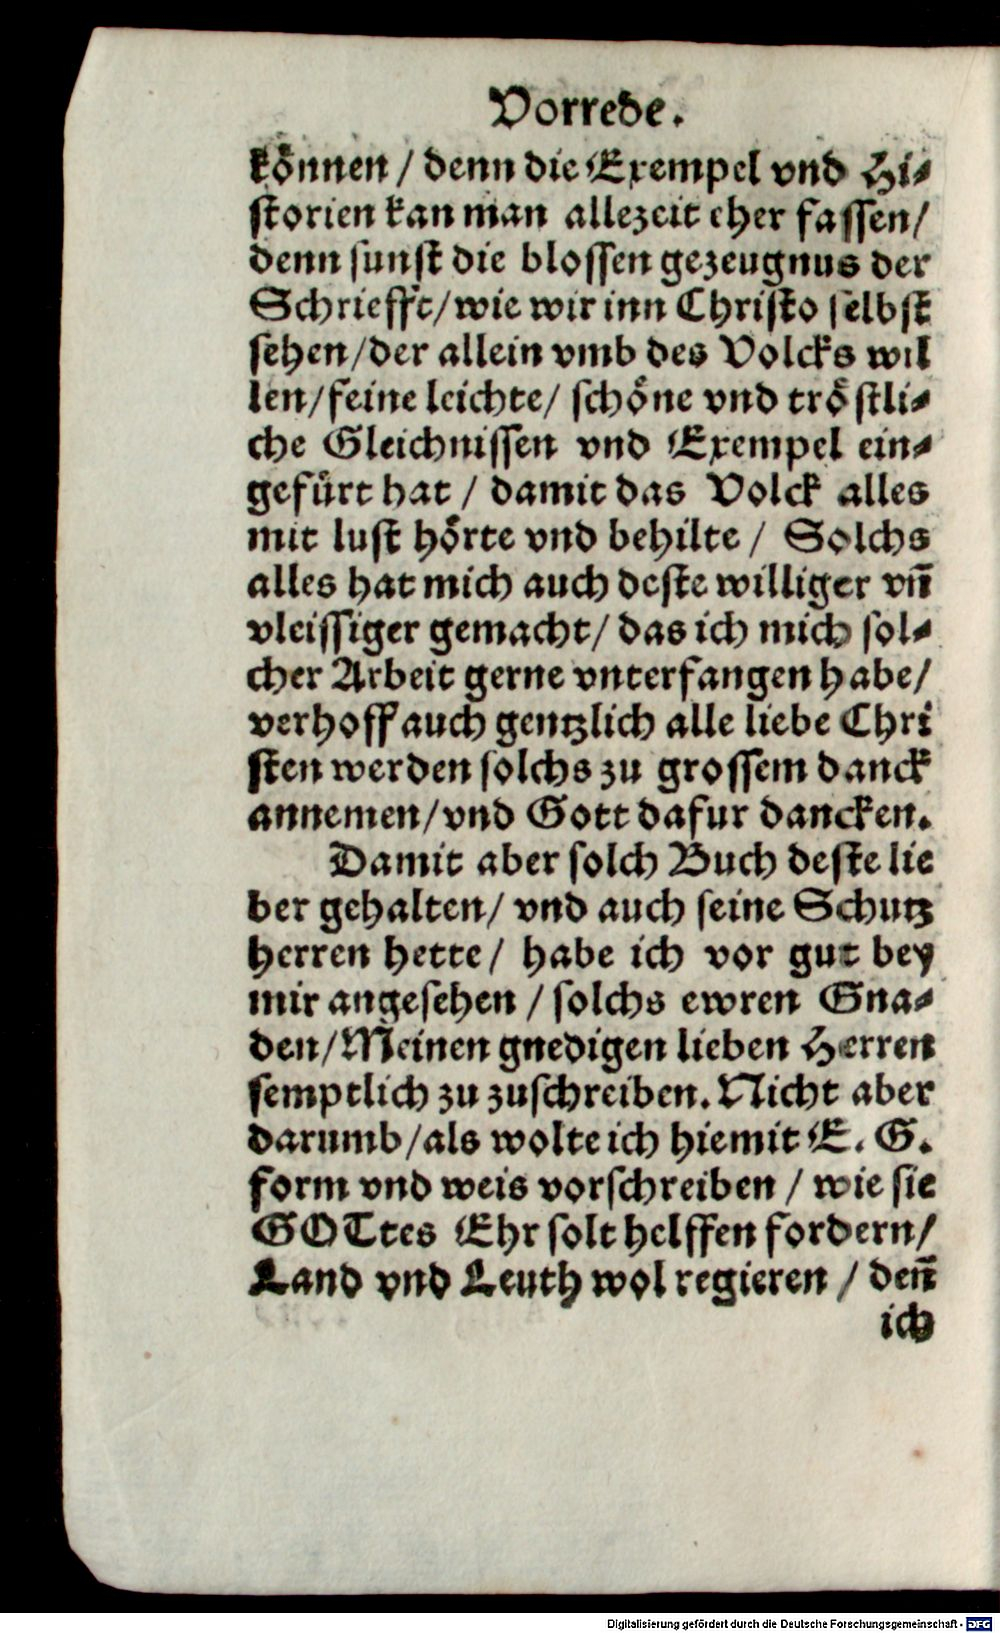 Vorrede.
können / denn die Exempel vnd Hi⸗
storien kan man allezeit eher fassen/
denn sunst die blossen gezeugnus der
Schriefft/wie wir inn Christo selbst
sehen/der allein vmb des Volcks wil
len/feine leichte/ schöne vnd tröstli⸗
che Gleichnissen vnd Exempel ein⸗
gefürt hat / damit das Volck alles
mit lust hörte vnd behilte / Solchs
alles hat mich auch deste williger vn̄
vleissiger gemacht/ das ich mich sol⸗
cher Arbeit gerne vnterfangen habe/
verhoff auch gentzlich alle liebe Chri
sten werden solchs zu grossem danck
annemen/vnd Gott dafur dancken.
Damit aber solch Buch deste lie
ber gehalten/ vnd auch seine Schutz
herren hette/ habe ich vor gut bey
mir angesehen / solchs ewren Gna⸗
den/Meinen gnedigen lieben Herren
semptlich zu zuschreiben. Nicht aber
darumb/als wolte ich hiemit E. G.
form vnd weis vorschreiben / wie sie
GOTtes Ehr solt helffen fordern/
Land vnd Leuth wol regieren / den̄
ich
Digitalisierung gefördert durch die Deutsche Forschungsgemeinschaft - DFG